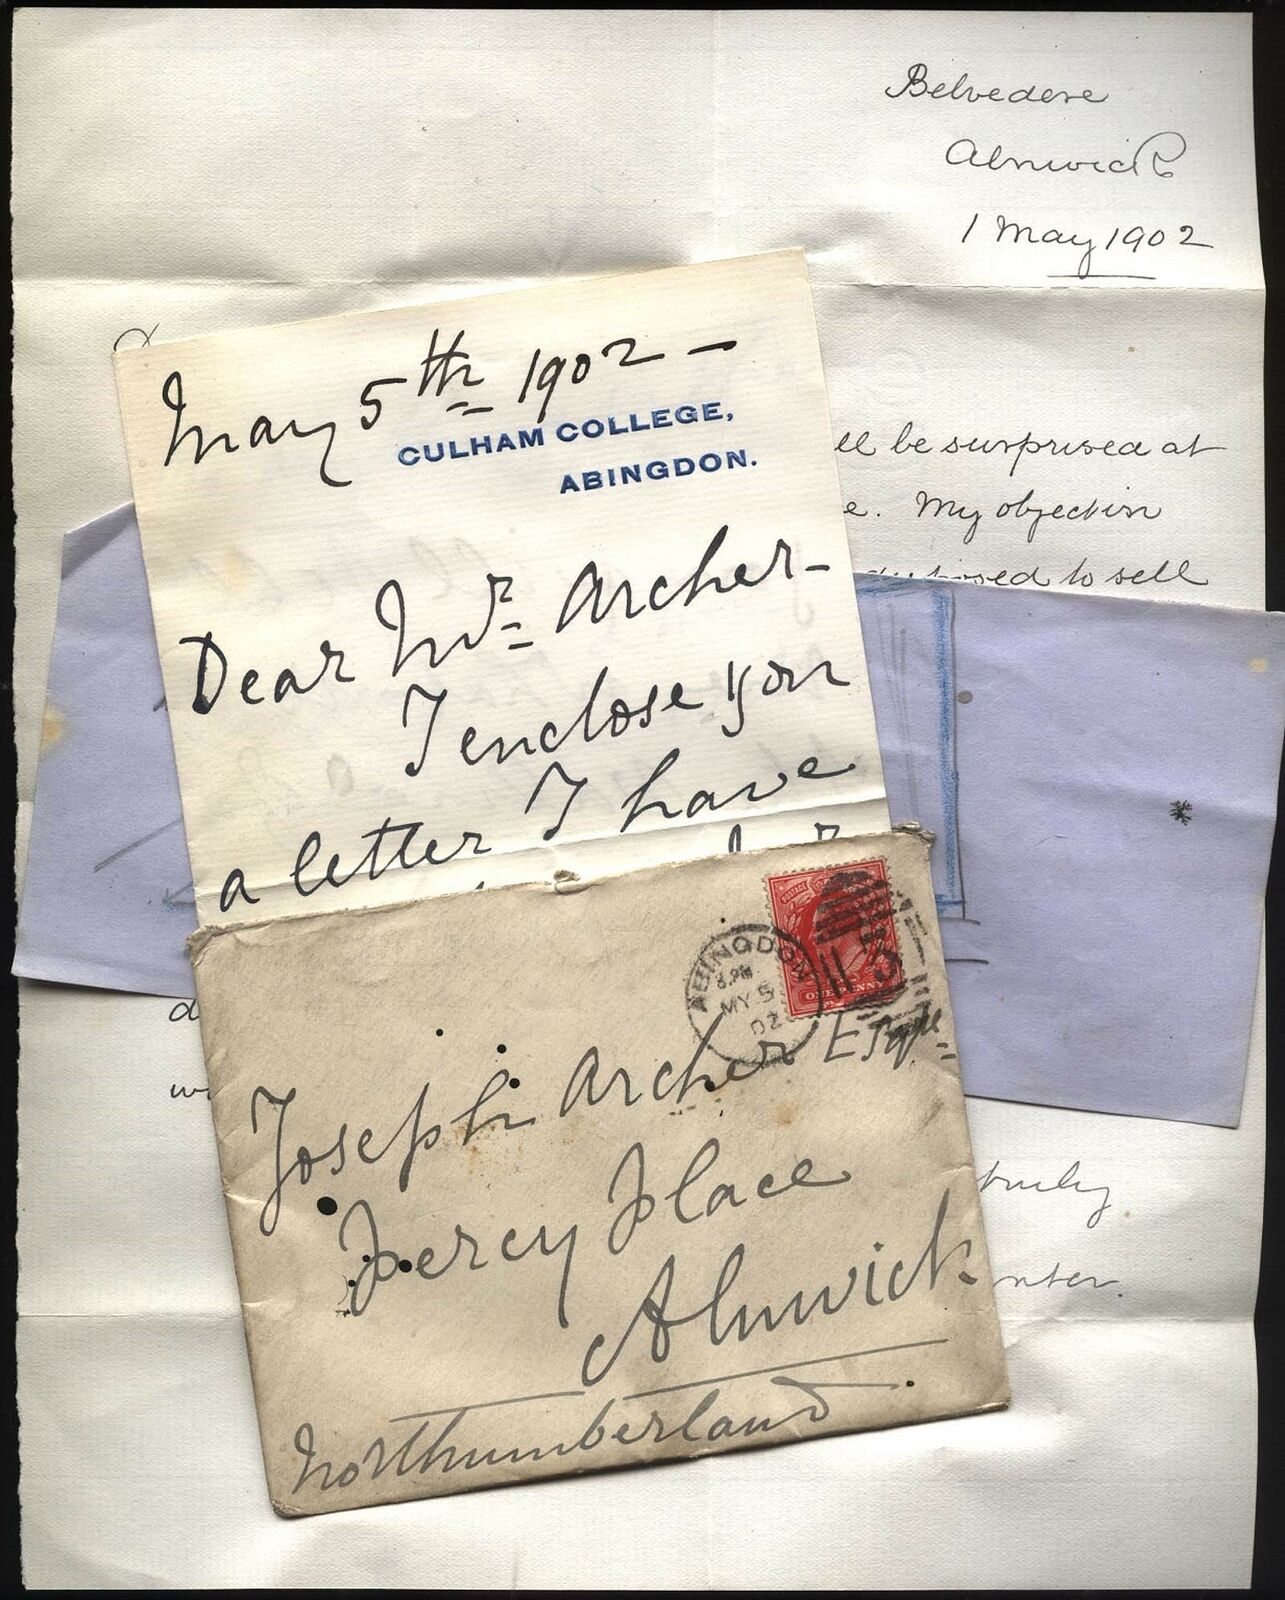 Belvedere
Alnwick
1 May 1902
ll be surprised at
e. My objection
disposed to sell
truly
nter.
May 5th 1902 —
CULHAM COLLEGE,
ABINGDON.
Dear Mr Archer -
I enclose you
a letter I have
POSTAGE
ONE PENNY
ABINGDON
MY 5
02
113
Joseph Archer Esqre
Percy Place
Alnwick
Northumberland